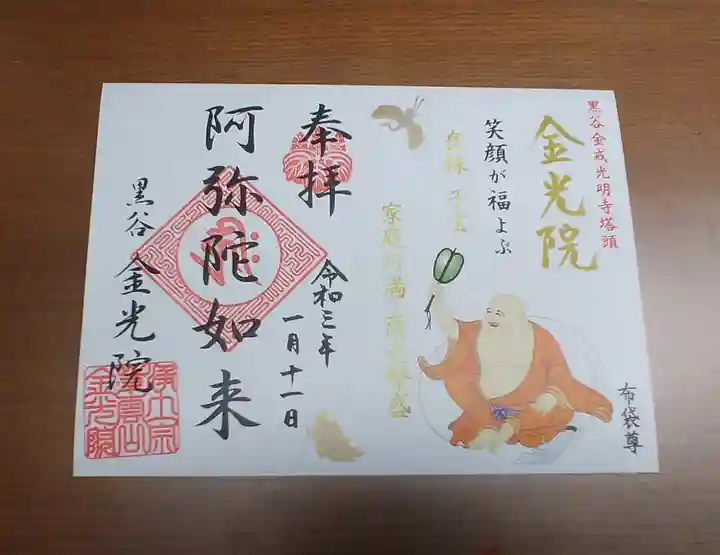 黒谷金戒光明寺塔頭
金光院
笑顔が福よぶ
良縁 子宝
家庭円満 商売繁盛
布袋尊
奉拝
令和三年
一月十一日
阿弥陀如来
黒谷 金光院
浄土宗
金光院